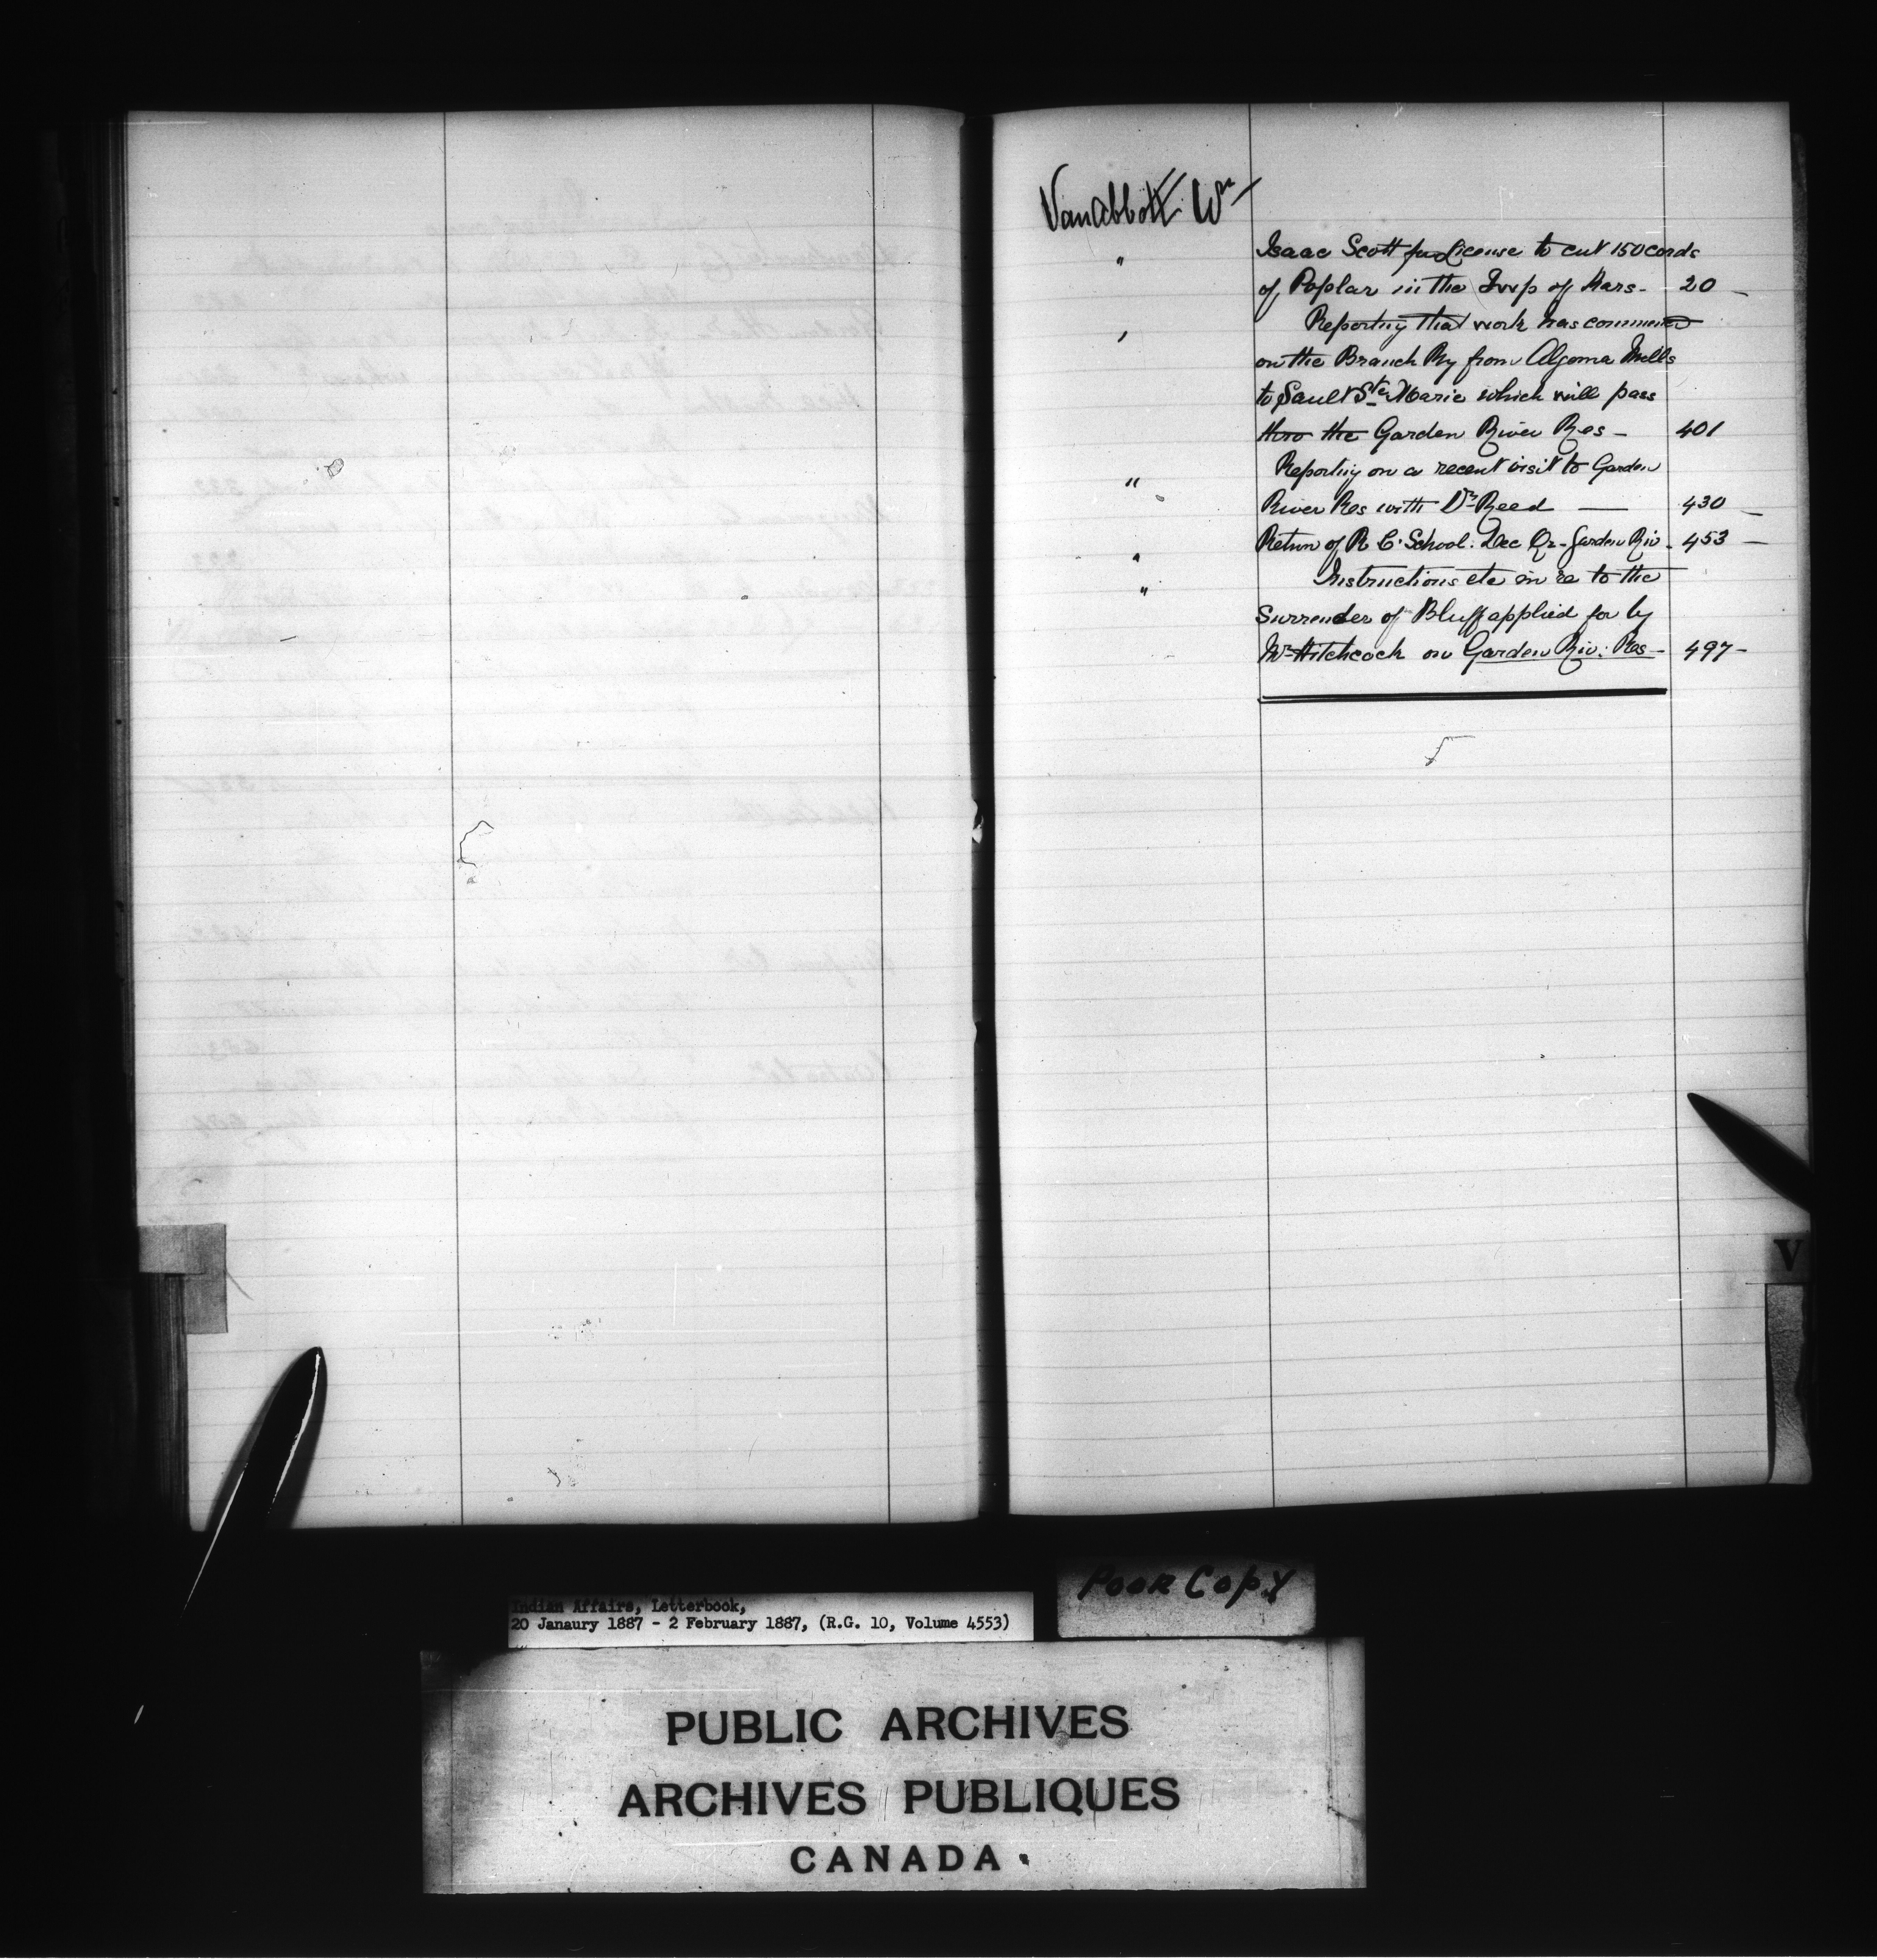 VanAbbott Wm
" Isaac Scott for License to cut 150 cords
of Poplar in the Twp of Kars - 20 -
" Reporting that work has commenced
on the Branch Ry from Algoma Mills
to Sault Ste Marie which will pass
thro the Garden River Res - 401
" Reporting on a recent visit to Garden
River Res with Dr Reed — 430 -
" Return of R. C. School. Dec Qr - Garden Riv. 453 -
" Instructions etc in re to the
Surrender of Bluff applied for by
Mr Hitchcock on Garden Riv. Res - 497 -
V
Poor Copy
Indian Affairs, Letterbook,
20 Janaury 1887 - 2 February 1887, (R.G. 10, Volume 4553)
PUBLIC ARCHIVES
ARCHIVES PUBLIQUES
CANADA